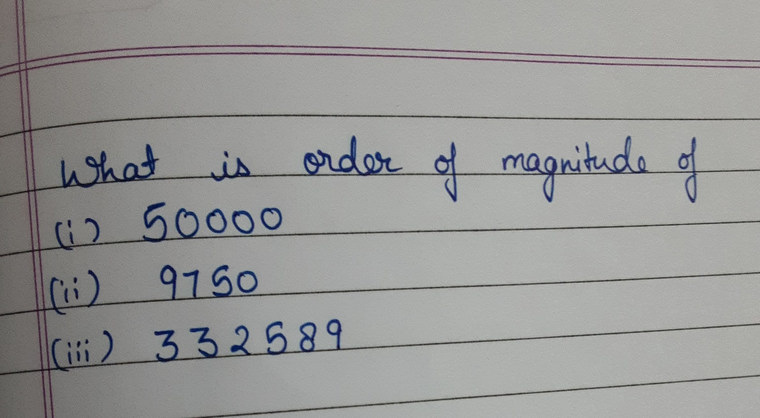 What is order of magnitude of
(i) 50000
(ii) 9750
(iii) 332589